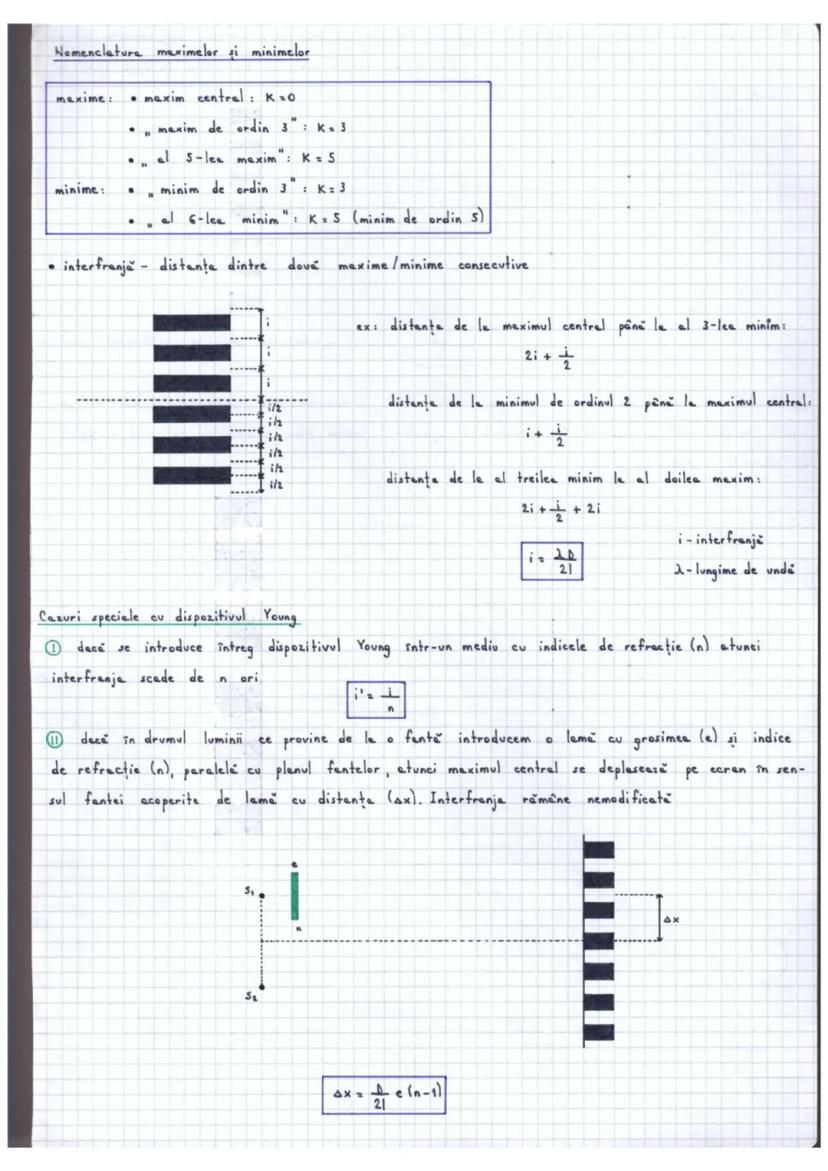 Nomenclatura maximelor și minimelor
maxime: • maxim central: K=0
• „maxim de ordin 3": K=3
• „al 5-lea maxim": K=5
minime: • „minim de ordin 3": K=3
• „al 6-lea minim": K=5 (minim de ordin 5)
• interfranjă - distanța dintre două maxime/minime consecutive
i
i
i
i/2
i/2
i/2
i/2
i/2
i/2
ex: distanța de la maximul central până la al 3-lea minim:
2i + i/2
distanța de la minimul de ordinul 2 până la maximul central:
i + i/2
distanța de la al treilea minim la al doilea maxim:
2i + i/2 + 2i
i = λD/2l
i - interfranjă
λ - lungime de undă
Cazuri speciale cu dispozitivul Young
I dacă se introduce întreg dispozitivul Young într-un mediu cu indicele de refracție (n) atunci
interfranja scade de n ori
i' = i/n
II dacă în drumul luminii ce provine de la o fantă introducem o lamă cu grosimea (e) și indice
de refracție (n), paralelă cu planul fantelor, atunci maximul central se deplasează pe ecran în sen-
sul fantei acoperite de lamă cu distanța (Δx). Interfranja rămâne nemodificată
e
S₁
n
Δx
S₂
Δx = D/2l e (n-1)